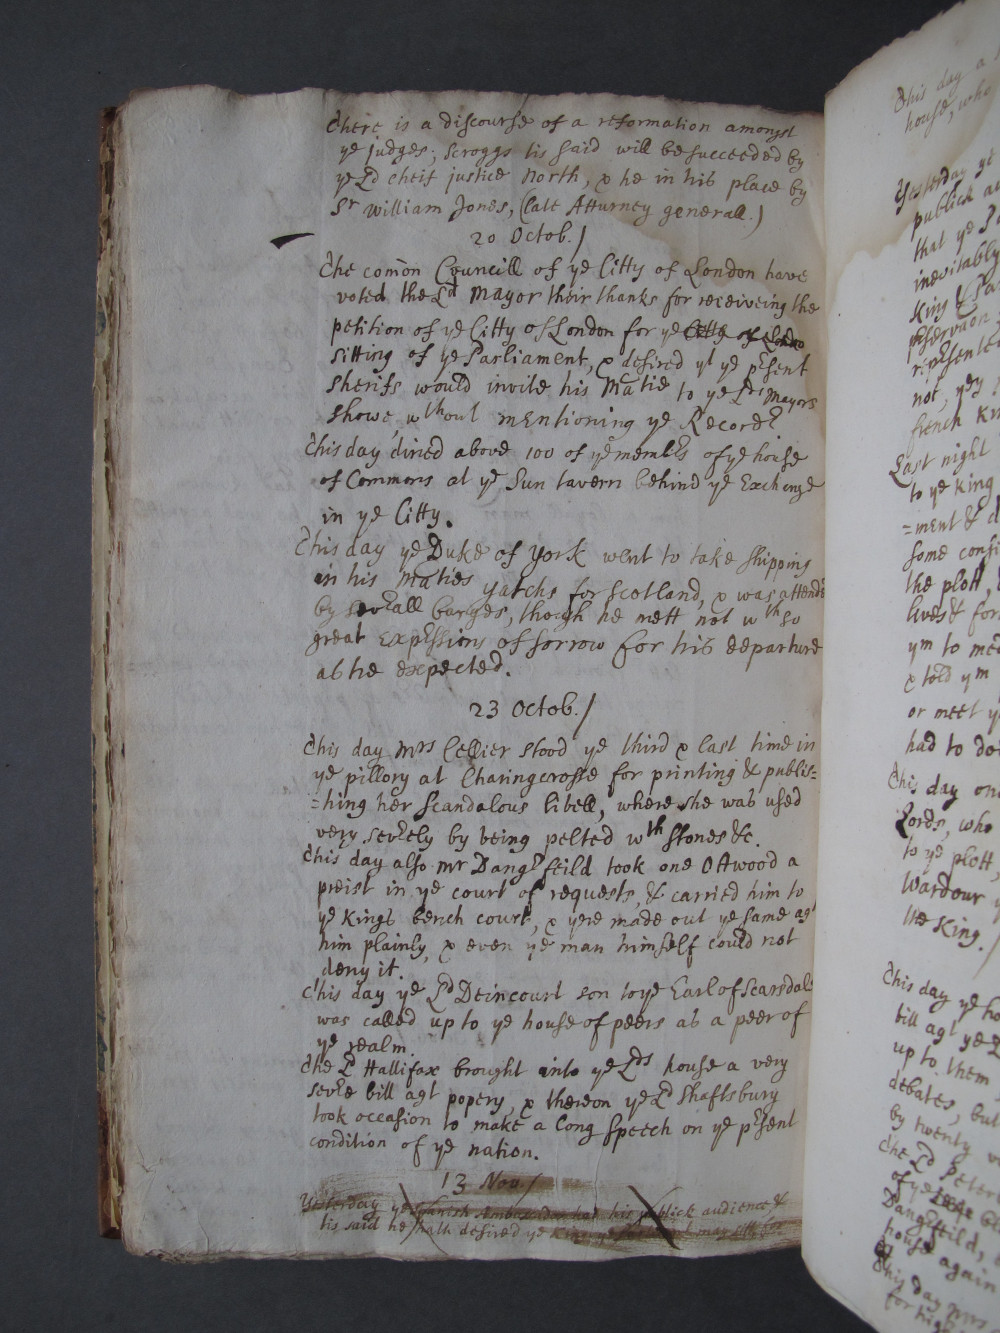 There is a discourse of a reformation amongst
ye Judges; Scroggs tis said will be succeeded by
ye Ld cheif justice North, & he in his place by
Sr William Jones, (late Atturney generall.)
20 Octob./
The comon Councill of ye Citty of London have
voted the Ld Mayor their thanks for receiveing the
petition of ye Citty of London for ye Citty of Londo
sitting of ye Parliament, & desired yt ye prsent
sherifs would invite his Matie to ye Lds Mayors
showe, without mentioning ye Recorder
This day dined above 100 of ye membrs of ye house
of Commons at ye Sun tavern behind ye Exchange
in ye Citty.
This day ye Duke of York went to take shipping
in his Maties yatchs for Scotland, & was attended
by severall barges, though he mett not wth so
great Expressions of sorrow for his departure
as he expected.
23 Octob./
This day Mrs Cellier stood ye third & last time in
ye pillory at Charingcrosse for printing & publis=
=hing her scandalous libell, where she was used
very severely by being pelted wth stones &c.
This day also Mr Dangrfeild took one Ottwood a
preist in ye court of requests, & carried him to
ye Kings bench court, & yre made out ye same agt
him plainly, & even ye man himself could not
deny it.
This day ye Ld Deincourt son to ye Earl of Scarsdale
was called up to ye house of peers as a peer of
ye realm.
The Ld Hallifax brought into ye Lds house a very
severe bill agt popery, & thereon ye Ld Shaftsbury
took occasion to make a long speech on ye prsent
condition of ye nation.
13 Nov./
Yesterday ye Spanish Ambassador had his publick audience &
tis said he hath desired ye King ye
This day a
house, who
Yesterday ye
publick au
that ye P
inevitably
King & Par
preservaon
represented
not, yey
french Kin
Last night
to ye King
=ment & d
some consi
the plott,
lives & for
ym to mee
& told ym
or meet y
had to do
This day one
Lords, who
to ye plott,
Wardour
the King.
This day ye ho
bill agt ye
up to them
debates, but
by twenty
The Ld Peter
of ye
Dangrfeild,
house again
This day Mrs
for high